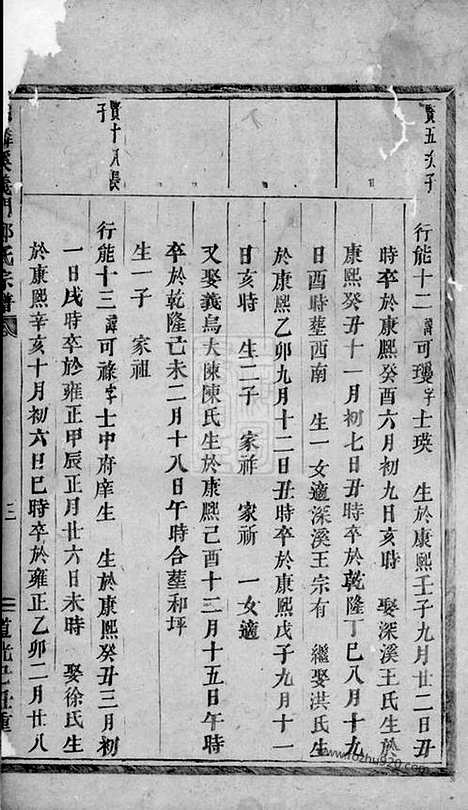 賢五次子
行能十二諱可瓊字士瑛　生於康熙壬子九月廿二日丑
時卒於康熙癸酉六月初九日亥時　娶深溪王氏生於
康熙癸丑十一月初七日丑時卒於乾隆丁巳八月十九
日酉時塟西南　生一女適深溪王宗有　繼娶洪氏生
於康熙乙卯九月十二日丑時卒於康熙戊子九月十一
日亥時　生二子　家祥　家祈　一女適
又娶義烏大陳陳氏生於康熙己酉十二月十五日午時
卒於乾隆己未二月十八日午時合塟和坪
生一子　家祖
賢十八長子
行能十三諱可祿字士中府庠生　生於康熙癸丑三月初
一日戌時卒於雍正甲辰正月廿六日未時　娶徐氏生
於康熙辛亥十月初六日巳時卒於雍正乙卯二月廿八
溪義門鄭氏宗譜　三　道光
www.fozhu920.com